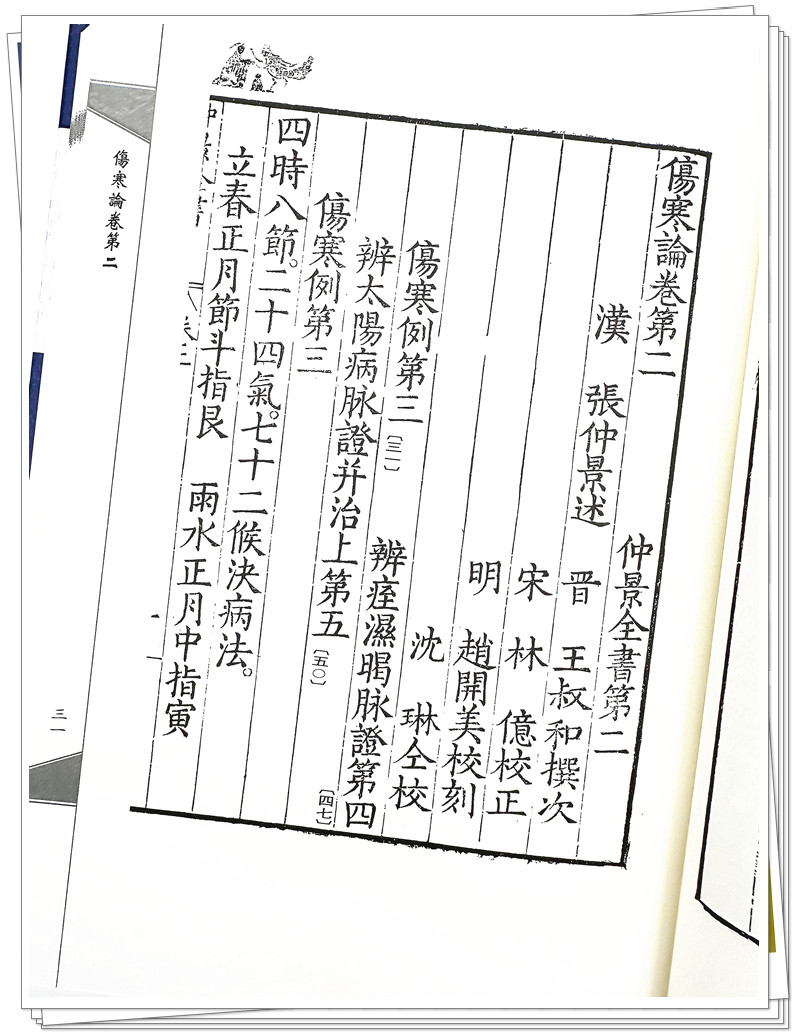 傷寒論卷第二
仲景全書第二
漢 張仲景述
晋 王叔和撰次
宋 林 億校正
明 趙開美校刻
沈 琳仝校
傷寒例第三〔三一〕
辨痓濕暍脉證第四〔四七〕
辨太陽病脉證并治上第五〔五〇〕
傷寒例第三
四時八節。二十四氣。七十二候決病法。
立春正月節斗指艮 雨水正月中指寅
傷寒論卷第二
三一